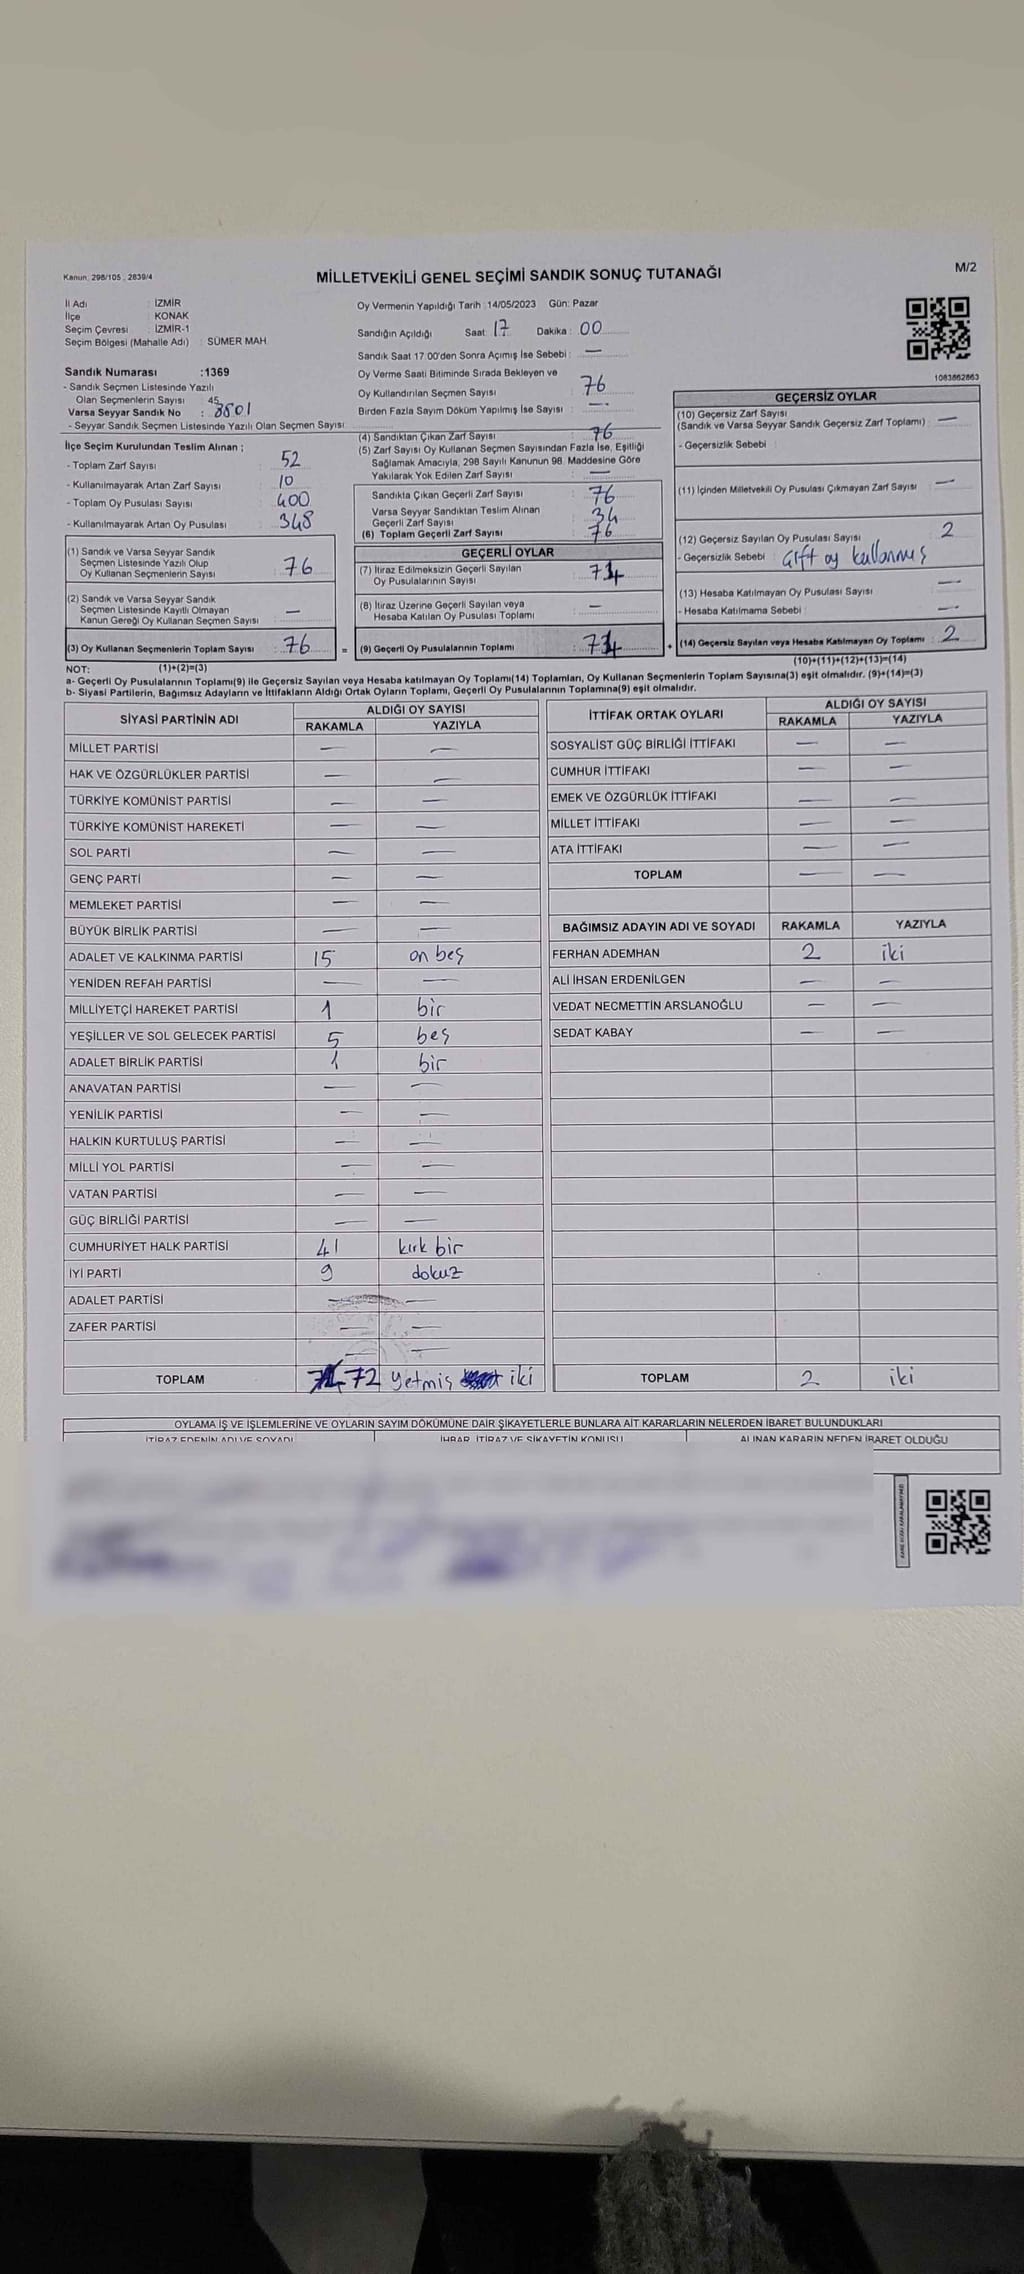 Kanun: 298/105 , 2839/4
MİLLETVEKİLİ GENEL SEÇİMİ SANDIK SONUÇ TUTANAĞI
M/2
İl Adı : İZMİR
İlçe : KONAK
Seçim Çevresi : İZMİR-1
Seçim Bölgesi (Mahalle Adı) : SÜMER MAH.
Oy Vermenin Yapıldığı Tarih :14/05/2023 Gün: Pazar
Sandığın Açıldığı Saat: 17 Dakika : 00
Sandık Saat 17.00'den Sonra Açımış İse Sebebi : —
Oy Verme Saati Bitiminde Sırada Bekleyen ve
Oy Kullandırılan Seçmen Sayısı : 76
Birden Fazla Sayım Döküm Yapılmış İse Sayısı : —
Sandık Numarası :1369
- Sandık Seçmen Listesinde Yazılı
Olan Seçmenlerin Sayısı 45
Varsa Seyyar Sandık No : 8801
- Seyyar Sandık Seçmen Listesinde Yazılı Olan Seçmen Sayısı
İlçe Seçim Kurulundan Teslim Alınan ;
- Toplam Zarf Sayısı : 52
- Kullanılmayarak Artan Zarf Sayısı : 10
- Toplam Oy Pusulası Sayısı : 400
- Kullanılmayarak Artan Oy Pusulası : 348
(1) Sandık ve Varsa Seyyar Sandık
Seçmen Listesinde Yazılı Olup
Oy Kullanan Seçmenlerin Sayısı : 76
(2) Sandık ve Varsa Seyyar Sandık
Seçmen Listesinde Kayıtlı Olmayan
Kanun Gereği Oy Kullanan Seçmen Sayısı : —
(3) Oy Kullanan Seçmenlerin Toplam Sayısı : 76 =
(4) Sandıktan Çıkan Zarf Sayısı : 76
(5) Zarf Sayısı Oy Kullanan Seçmen Sayısından Fazla İse, Eşitliği
Sağlamak Amacıyla, 298 Sayılı Kanunun 98. Maddesine Göre
Yakılarak Yok Edilen Zarf Sayısı : —
Sandıkta Çıkan Geçerli Zarf Sayısı : 76
Varsa Seyyar Sandıktan Teslim Alınan
Geçerli Zarf Sayısı : 34
(6) Toplam Geçerli Zarf Sayısı : 76
GEÇERLİ OYLAR
(7) İtiraz Edilmeksizin Geçerli Sayılan
Oy Pusulalarının Sayısı : 74
(8) İtiraz Üzerine Geçerli Sayılan veya
Hesaba Katılan Oy Pusulası Toplamı : —
(9) Geçerli Oy Pusulalarının Toplamı : 74 +
1083862863
GEÇERSİZ OYLAR
(10) Geçersiz Zarf Sayısı
(Sandık ve Varsa Seyyar Sandık Geçersiz Zarf Toplamı) : —
- Geçersizlik Sebebi :
(11) İçinden Milletvekili Oy Pusulası Çıkmayan Zarf Sayısı : —
(12) Geçersiz Sayılan Oy Pusulası Sayısı : 2
- Geçersizlik Sebebi : Çift oy kullanmış
(13) Hesaba Katılmayan Oy Pusulası Sayısı : —
- Hesaba Katılmama Sebebi : —
(14) Geçersiz Sayılan veya Hesaba Katılmayan Oy Toplamı : 2
NOT: (1)+(2)=(3)
(10)+(11)+(12)+(13)=(14)
a- Geçerli Oy Pusulalarının Toplamı(9) ile Geçersiz Sayılan veya Hesaba katılmayan Oy Toplamı(14) Toplamları, Oy Kullanan Seçmenlerin Toplam Sayısına(3) eşit olmalıdır. (9)+(14)=(3)
b- Siyasi Partilerin, Bağımsız Adayların ve İttifakların Aldığı Ortak Oyların Toplamı, Geçerli Oy Pusulalarının Toplamına(9) eşit olmalıdır.
SİYASİ PARTİNİN ADI ALDIĞI OY SAYISI
RAKAMLA YAZIYLA
MİLLET PARTİSİ — —
HAK VE ÖZGÜRLÜKLER PARTİSİ — —
TÜRKİYE KOMÜNİST PARTİSİ — —
TÜRKİYE KOMÜNİST HAREKETİ — —
SOL PARTİ — —
GENÇ PARTİ — —
MEMLEKET PARTİSİ — —
BÜYÜK BİRLİK PARTİSİ — —
ADALET VE KALKINMA PARTİSİ 15 on beş
YENİDEN REFAH PARTİSİ — —
MİLLİYETÇİ HAREKET PARTİSİ 1 bir
YEŞİLLER VE SOL GELECEK PARTİSİ 5 beş
ADALET BİRLİK PARTİSİ 1 bir
ANAVATAN PARTİSİ — —
YENİLİK PARTİSİ — —
HALKIN KURTULUŞ PARTİSİ — —
MİLLİ YOL PARTİSİ — —
VATAN PARTİSİ — —
GÜÇ BİRLİĞİ PARTİSİ — —
CUMHURİYET HALK PARTİSİ 41 kırk bir
İYİ PARTİ 9 dokuz
ADALET PARTİSİ — —
ZAFER PARTİSİ — —
— —
TOPLAM 72 yetmiş iki
İTTİFAK ORTAK OYLARI ALDIĞI OY SAYISI
RAKAMLA YAZIYLA
SOSYALİST GÜÇ BİRLİĞİ İTTİFAKI — —
CUMHUR İTTİFAKI — —
EMEK VE ÖZGÜRLÜK İTTİFAKI — —
MİLLET İTTİFAKI — —
ATA İTTİFAKI — —
TOPLAM — —
BAĞIMSIZ ADAYIN ADI VE SOYADI RAKAMLA YAZIYLA
FERHAN ADEMHAN 2 iki
ALİ İHSAN ERDENİLGEN — —
VEDAT NECMETTİN ARSLANOĞLU — —
SEDAT KABAY — —
TOPLAM 2 iki
OYLAMA İŞ VE İŞLEMLERİNE VE OYLARIN SAYIM DÖKÜMÜNE DAİR ŞİKAYETLERLE BUNLARA AİT KARARLARIN NELERDEN İBARET BULUNDUKLARI
İTİRAZ EDENİN ADI VE SOYADI İHBAR, İTİRAZ VE ŞİKAYETİN KONUSU ALINAN KARARIN NEDEN İBARET OLDUĞU